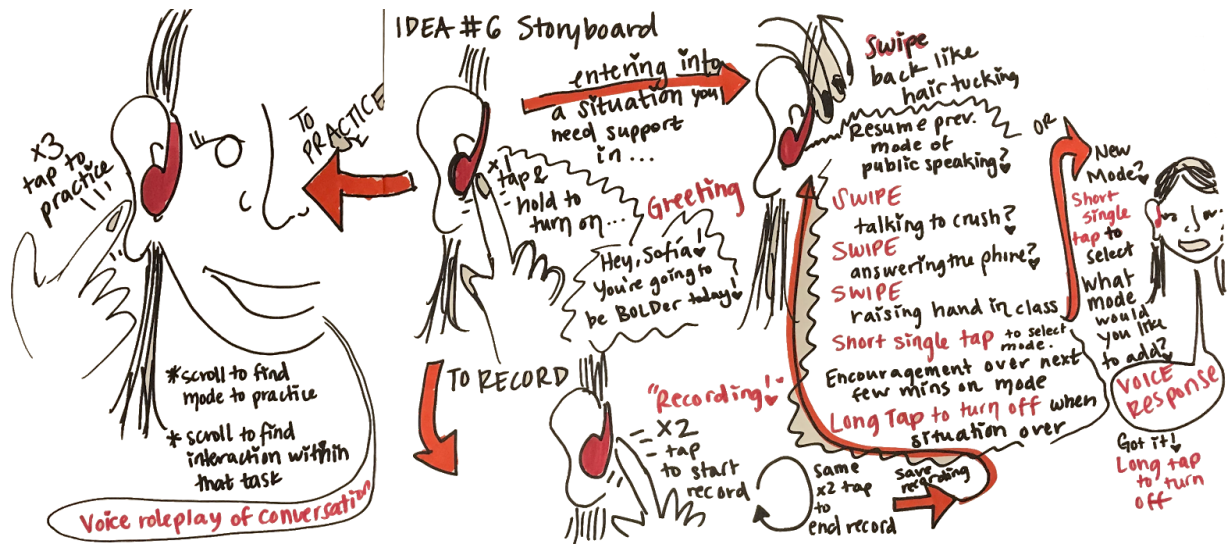 IDEA #6 Storyboard
x3
tap to
practice!!!
TO
PRACTICE
*scroll to find
mode to practice
*scroll to find
interaction within
that task
Voice roleplay of conversation
x1
tap &
hold to
turn on...
Greeting
Hey, Sofia!
You're going to
be BOLDer today!
entering into
a situation you
need support
in...
TO RECORD
"Recording!"
x2
tap
to start
record
same
x2 tap
to
end record
save
recording
Swipe
back like
hair tucking
Resume prev.
mode of
public speaking?
SWIPE
talking to crush?
SWIPE
answering the phone?
SWIPE
raising hand in class
Short single tap to select
mode.
Encouragement over next
few mins on mode
Long Tap to turn off when
situation over
OR
New
Mode?
Short
single
tap to
select
What
mode
would
you like
to add?
VOICE
RESPONSE
Got it!
Long tap
to turn
off